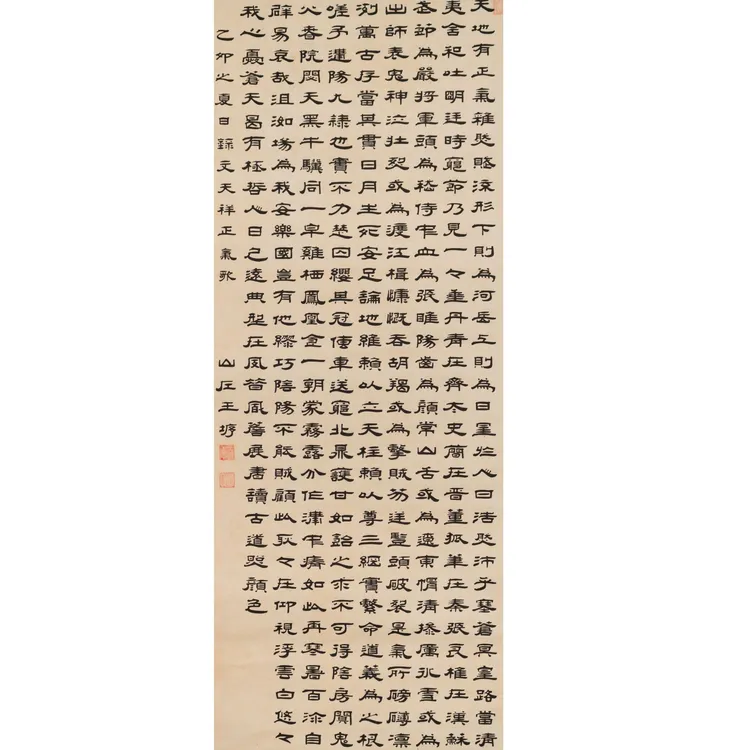 天地有正氣雜然賦流形下則為河岳上則為日星於人曰浩然沛乎塞蒼冥皇路當清
夷含和吐明廷時窮節乃見一々垂丹青在齊太史簡在晉董狐筆在秦張良椎在漢蘇
武節為嚴將軍頭為嵇侍中血為張睢陽齒為顏常山舌或為遼東帽清操厲冰雪或為
出師表鬼神泣壯烈或為渡江楫慷慨吞胡羯或為擊賊笏逆豎頭破裂是氣所磅礴凜
烈萬古存當其貫日月生死安足論地維賴以立天柱賴以尊三綱實繫命道義為之根
嗟予遘陽九隸也實不力楚囚纓其冠傳車送窮北鼎鑊甘如飴之求不可得陰房闃鬼
火春院閟天黑牛驥同一皁雞栖鳳凰食一朝蒙霧露分作溝中瘠如此再寒暑百沴自
辟易哀哉沮洳場為我安樂國豈有他繆巧陰陽不能賊顧此耿々在仰視浮雲白悠々
我心憂蒼天曷有極哲人日已遠典型在夙昔風簷展書讀古道照顏色
乙卯之夏日錄文天祥正氣歌 山左王垿